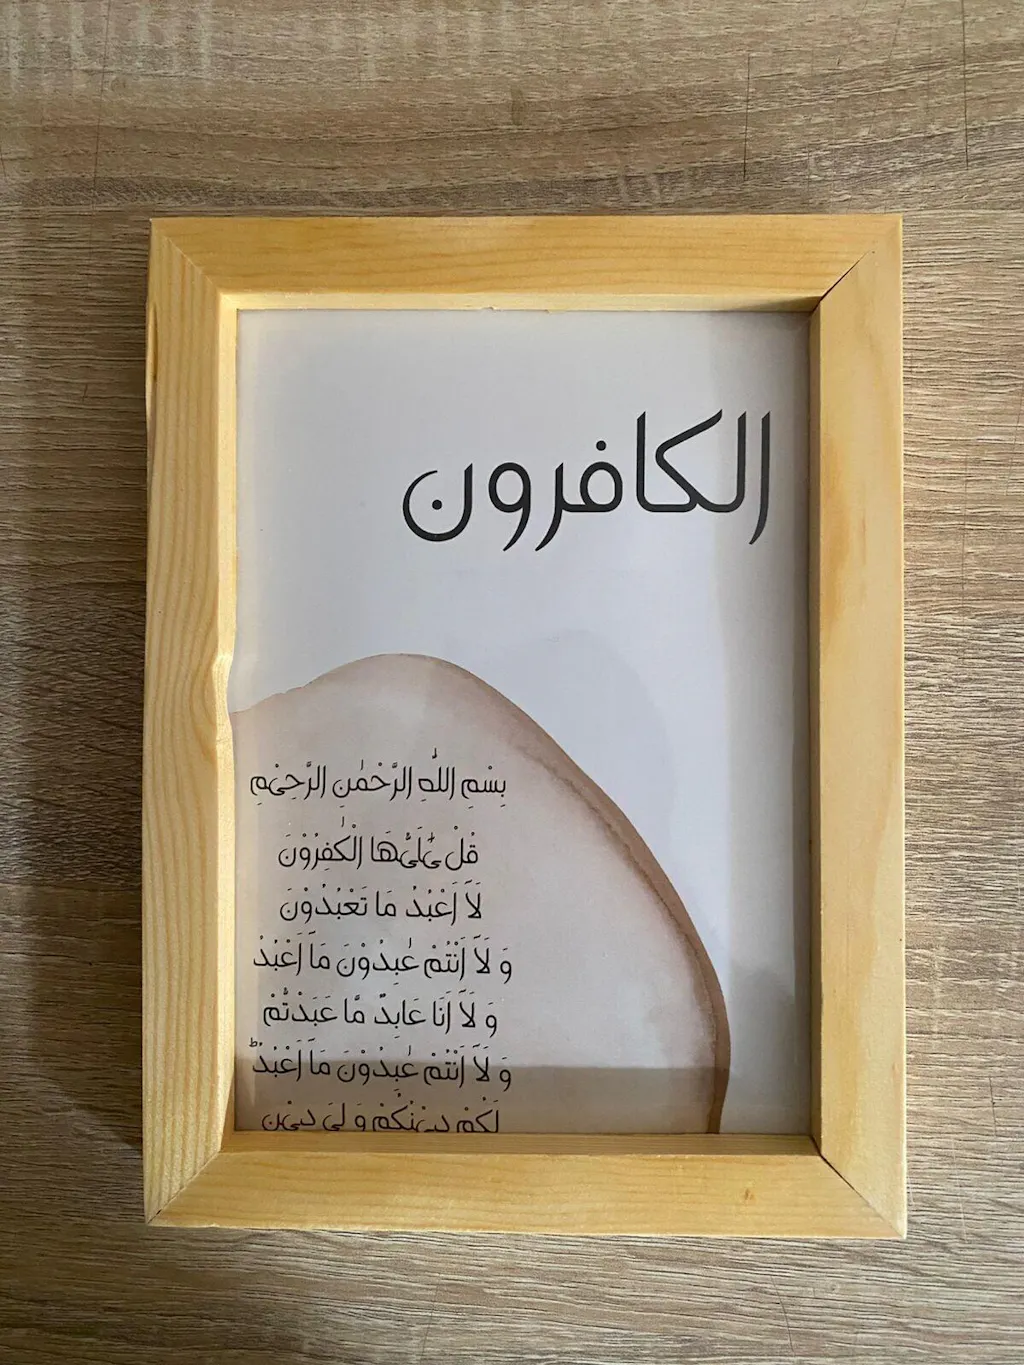 الكافرون
بِسْمِ اللّٰهِ الرَّحْمٰنِ الرَّحِیْمِ
قُلْ یٰۤاَیُّهَا الْكٰفِرُوْنَ
لَاۤ اَعْبُدُ مَا تَعْبُدُوْنَ
وَ لَاۤ اَنْتُمْ عٰبِدُوْنَ مَاۤ اَعْبُدُ
وَ لَاۤ اَنَا عَابِدٌ مَّا عَبَدْتُّمْ
وَ لَاۤ اَنْتُمْ عٰبِدُوْنَ مَاۤ اَعْبُدُؕ
لَكُمْ دِیْنُكُمْ وَ لِیَ دِیْنِ